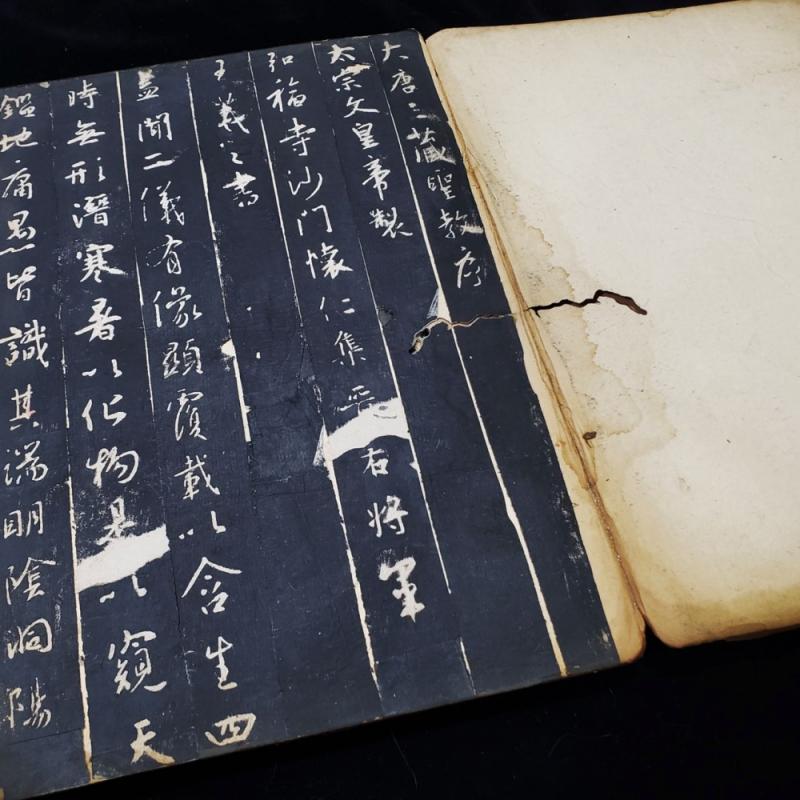 大唐三藏聖教序
太宗文皇帝製
弘福寺沙門懷仁集晉右將軍
王羲之書
蓋聞二儀有像顯覆載以含生四
時無形潛寒暑以化物是以窺天
鑑地庸愚皆識其端明陰洞陽